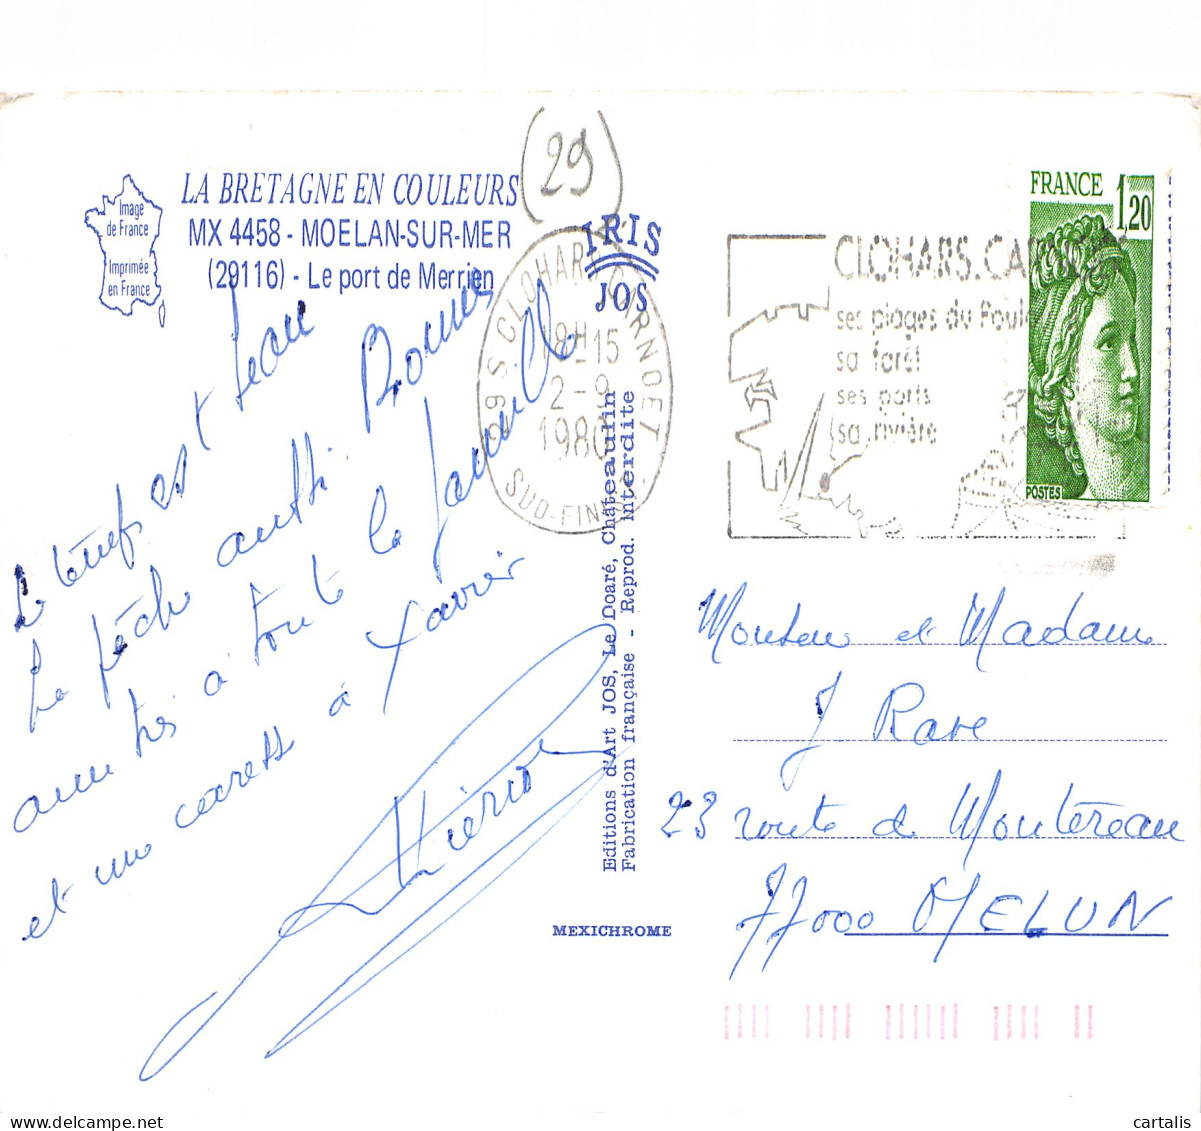 LA BRETAGNE EN COULEURS
MX 4458 - MOELAN-SUR-MER
(29116) - Le port de Merrien
Image
de France
Imprimée
en France
(29)
IRIS
JOS
29 S. CLOHARS CARNOET
18H15
2-9
1980
SUD-FIN
CLOHARS.CA
ses plages du Pouldu
sa forêt
ses ports
sa rivière
FRANCE 1,20
POSTES
Le temps est beau
La pêche aussi. Bonnes
amitiés à toute la famille
et une caresse à Xavier
Pierrot
Editions d'Art JOS, Le Doaré, Châteaulin
Fabrication française - Reprod. interdite
MEXICHROME
Monsieur et Madame
J. Rare
23 route de Montereau
77000 MELUN
cartalis